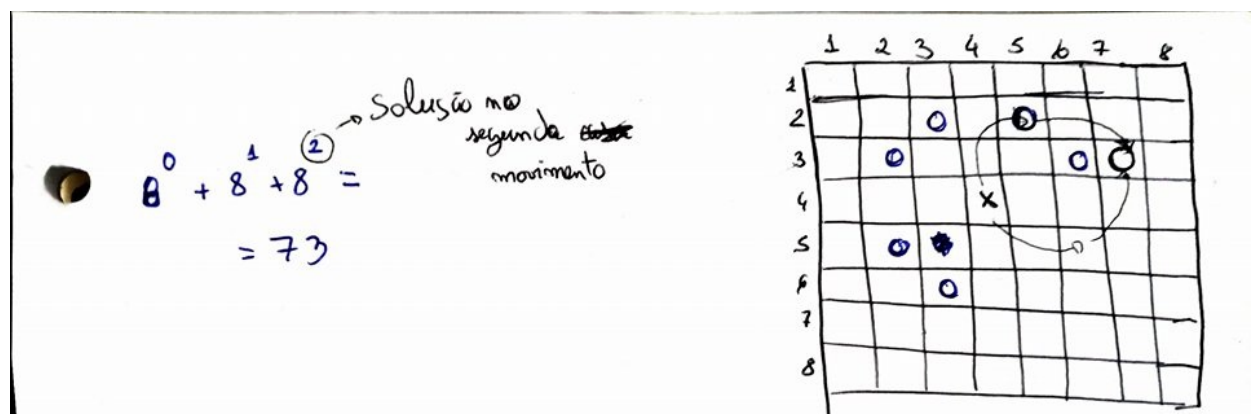 8⁰ + 8¹ + 8² =
= 73
Solução no
segundo
movimento
1 2 3 4 5 6 7 8
1
2
3
4
5
6
7
8
x